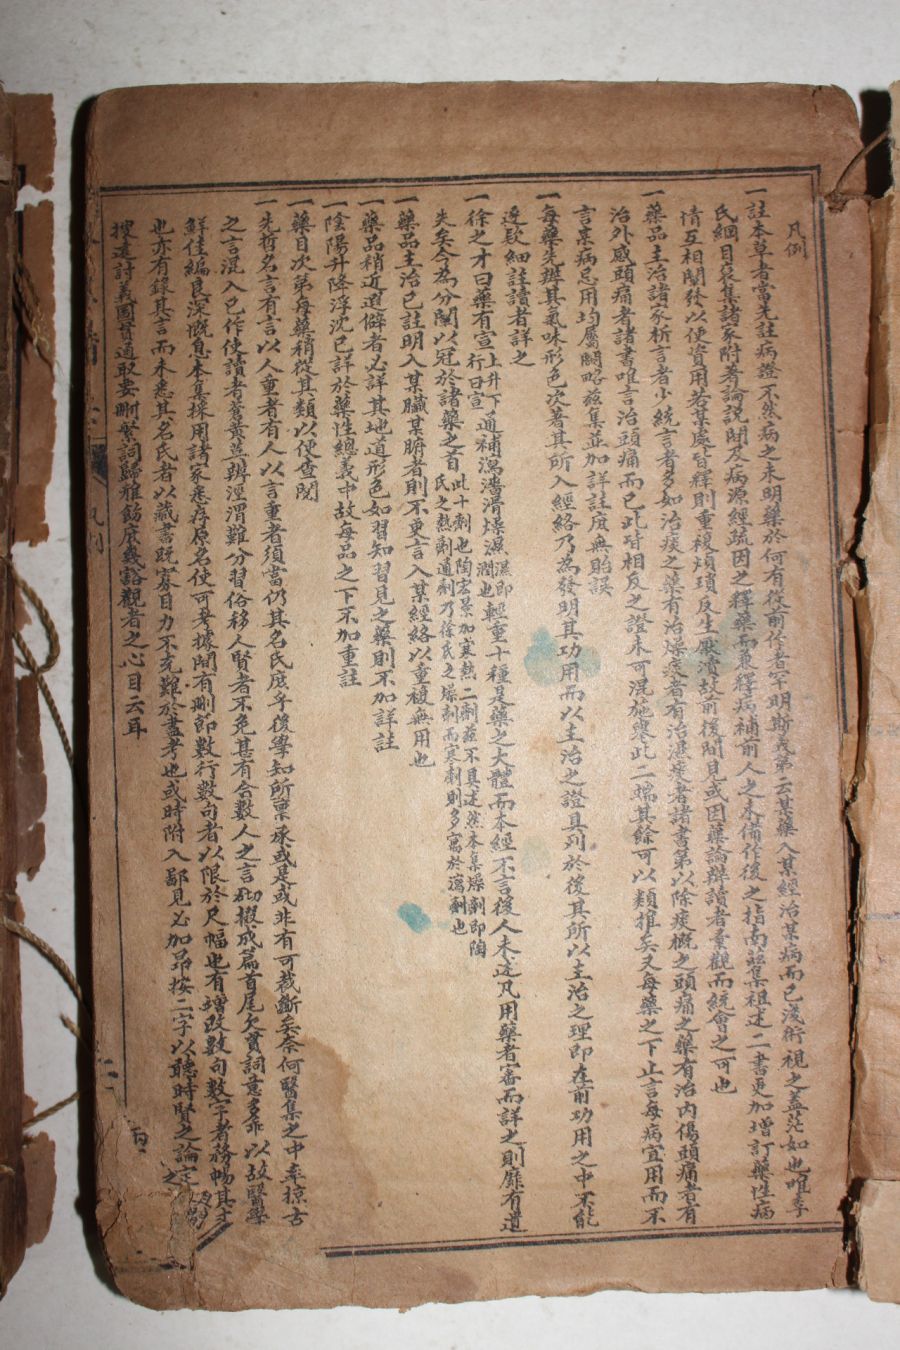 凡例
一註本草者當先註病證不然病之未明藥於何有從前作者罕明斯義第云某藥入某經治某病而已淺術視之蓋茫如也唯李
氏綱目裒集諸家附著論說間及病源經疏因之釋藥而兼釋病補前人之未備作後之指南茲集祖述二書更加增訂藥性病
情互相闡發以便資用若某處皆釋則重複煩瑣反生厭瀆故前後間見或因藥論辨讀者彙觀而統會之可也
一藥品主治諸家析言者少統言者多如治痰之藥有治燥痰者有治濕痰者諸書第以除痰概之頭痛之藥有治內傷頭痛者有
治外感頭痛者諸書唯言治頭痛而已此皆相反之證未可混施舉此二端其餘可以類推矣又每藥之下止言每病宜用而不
言某病忌用均屬闕略茲集並加詳註庶無貽誤
一每藥先辨其氣味形色次著其所入經絡乃為發明其功用而以主治之證具列於後其所以主治之理即在前功用之中不能
逐款細註讀者詳之
一徐之才曰藥有宣上升下行曰宣通補瀉濇滑燥濕濕即潤也輕重十種是藥之大體而本經不言後人未述凡用藥者審而詳之則靡有遺
失矣今為分闡以冠於諸藥之首此十劑也陶宏景加寒熱二劑茲不具述然本集燥劑即陶氏之熱劑通劑乃徐氏之燥劑而寒劑則多寓於瀉劑也
一藥品主治已註明入某臟某腑者則不更言入某經絡以重複無用也
一藥品稍近遐僻者必詳其地道形色如習知習見之藥則不加詳註
一陰陽升降浮沈已詳於藥性總義中故每品之下不加重註
一藥目次第每藥稍從其類以便查閱
一先哲名言有言以人重者有人以言重者須當仍其名氏庶乎後學知所稟承或是或非有可裁斷矣奈何醫集之中率掠古
之言混入己作使讀者蒼黃莫辨涇渭難分習俗移人賢者不免甚有合數人之言砌掇成篇首尾欠貫詞意多乖以故醫學
鮮佳編良深慨息本集採用諸家悉存原名使可考據間有刪節數行數句者以限於尺幅也有增改數句數字者務暢其
也亦有錄其言而未悉其名氏者以藏書既寡目力不充難於盡考也或時附入鄙見必加昂按二字以聽時賢之論定
搜遠討義圖貫通取要刪繁詞歸雅飭庶幾豁觀者之心目云耳
凡例